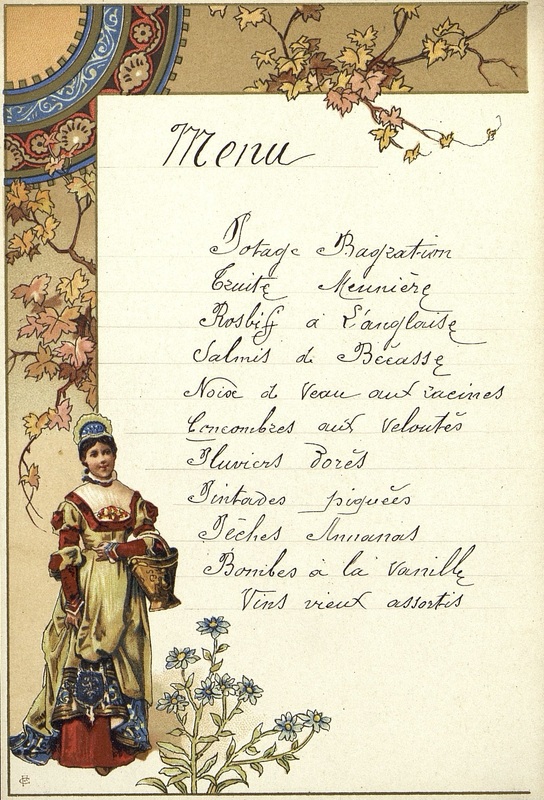 Menu
Potage Bagration
Truite Meunière
Rosbiff à L'anglaise
Salmis de Bécasse
Noix de Veau aux racines
Concombres aux Veloutés
Pluviers Dorés
Pintades piquées
Pêches Annanas
Bombes à la Vanille
Vins vieux assortis